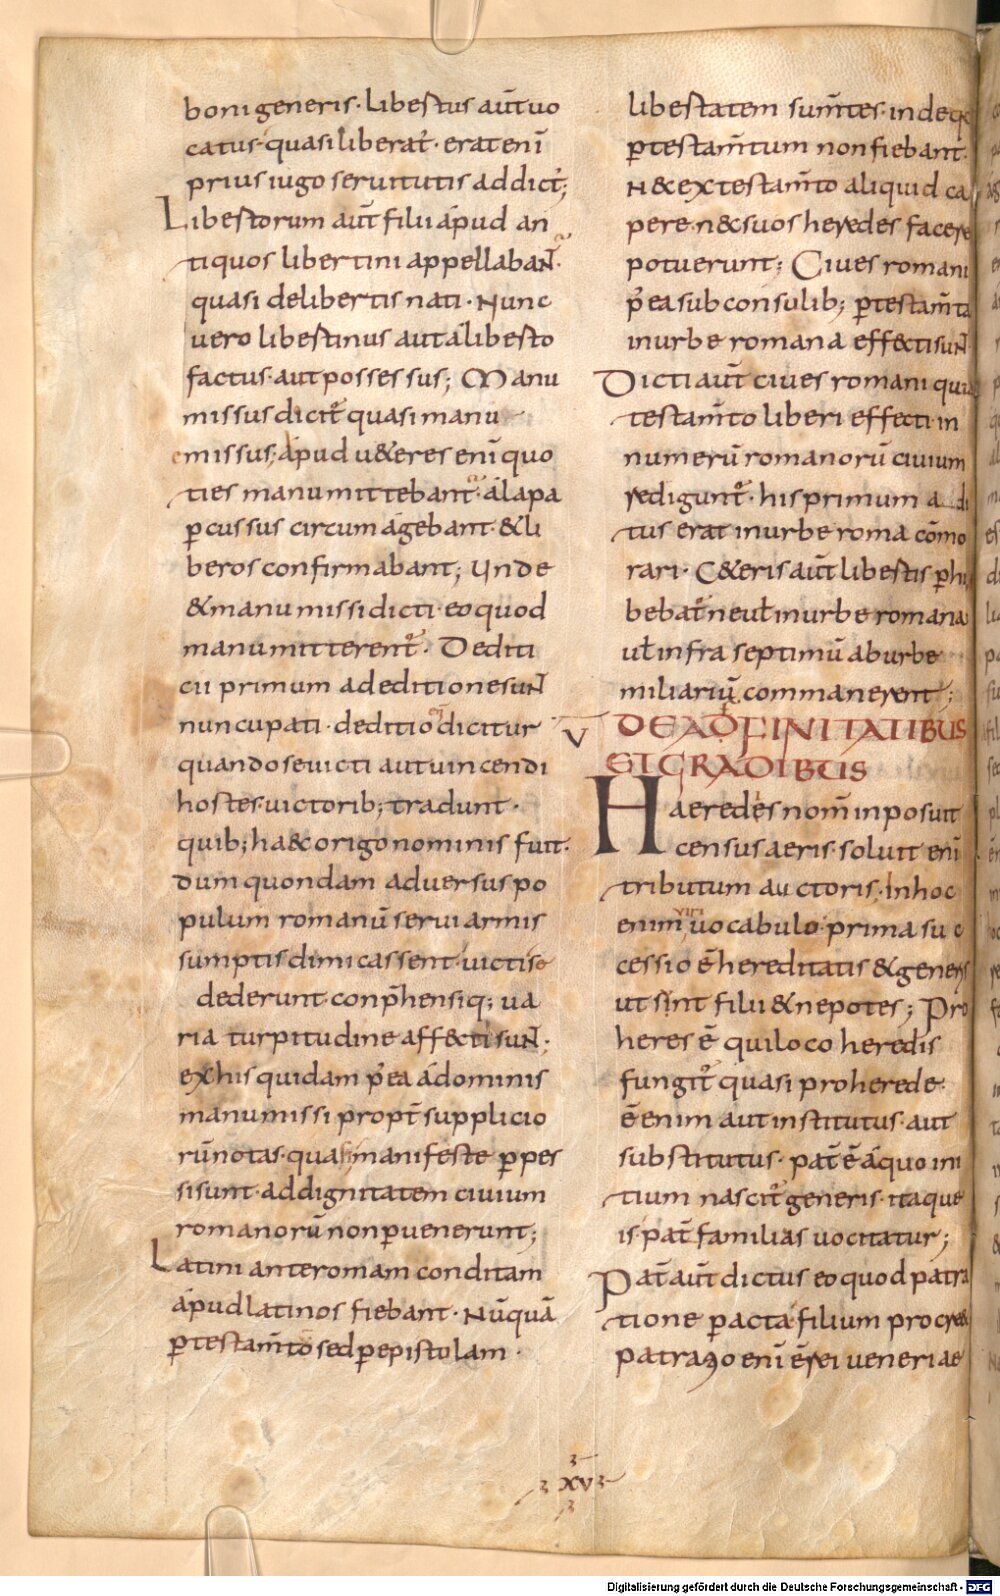 boni generis· Libertus aut̄ uo
catus· quasi liberat᷒· erat enī
prius iugo seruitutis addict᷒;
Libertorum aut̄ filii apud an
tiquos libertini appellaban̄t·
quasi de libertis nati· Nunc
uero libertinus aut a liberto
factus· aut possessus; Manu
missus dicit᷒ quasi manu
emissus; apud u&eres enī quo
ties manu mittebant᷒· alapa
ꝑcussus circum agebant᷒· & li
beros confirmabant᷒; Unde
& manu missi dicti· eo quod
manu mitterent᷒· Dediti
cii primum a deditione sunt
nuncupati· deditio dicitur
quando se uicti aut uincendi
hostes· uictorib; tradunt·
quib; ha&c origo nominis fuit·
dum quondam aduersus po
pulum romanū serui armis
sumptis dimicassent· uicti se
dederunt· conp̄hensiq; ua
ria turpitudine aff&cti sunt·
ex his quidam p̄ea a dominis
manumissi propt̄ supplicio
rū notas· quas manifeste ꝑpes
si sunt· ad dignitatem ciuium
romanorū non ꝑuenerunt;
Latini ante romam conditam
apud latinos fiebant· Nūquā
ꝑ testam̄to sed ꝑ epistolam·
libertatem sum̄tes· inde q
ꝑ testam̄tum non fiebant·
N& ex testam̄to aliquid ca
pere· n& suos heredes facere
potuerunt; Ciues romani
p̄ea sub consulib; ꝑ testam̄ta
in urbe romana eff&cti sunt
Dicti aut̄ ciues romani quia
testam̄to liberi effecti· in
numerū romanorū ciuium
redigunt᷒· his primum adi
tus erat in urbe roma cōmo
rari· C&eris aut̄ libertis ꝓhi
bebat᷒ ne uł in urbe romana
uł infra septimū ab urbe
miliariū commanerent;
V DE ADFINITATIBUS
ET GRADIBUS
Haeredes nom̄ inposuit
census aeris· soluit enī
tributum auctoris· In hoc
enim uocabulo· prima suc
cessio ē hereditatis & generis
ut sint filii & nepotes; Pro
heres ē qui loco heredis
fungit᷒ quasi pro herede·
ē enim aut institutus· aut
substitutus· pat̄ ē a quo ini
tium nascit᷒ generis· itaque
is pat̄ familias uocitatur;
Pat̄ aut̄ dictus eo quod patra
tione ꝑacta· filium procrea
patratio enī ē rei ueneriae
XV
Digitalisierung gefördert durch die Deutsche Forschungsgemeinschaft - DFG